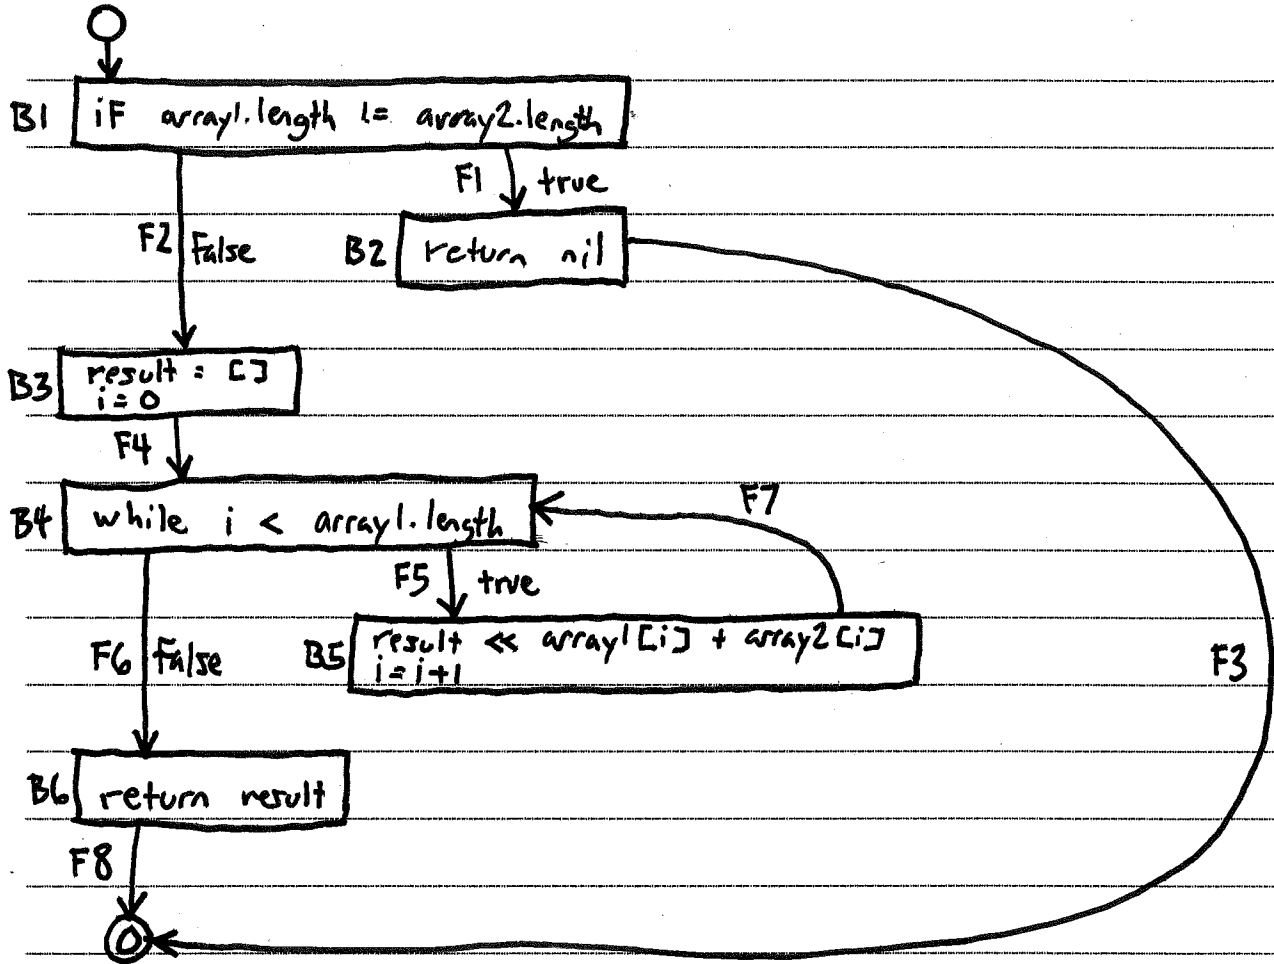 B1
iF array1.length != array2.length
F1 true
F2 False
B2
return nil
B3
result = []
i = 0
F4
B4
while i < array1.length
F7
F5 true
F6 False
B5
result << array1[i] + array2[i]
i = i + 1
F3
B6
return result
F8